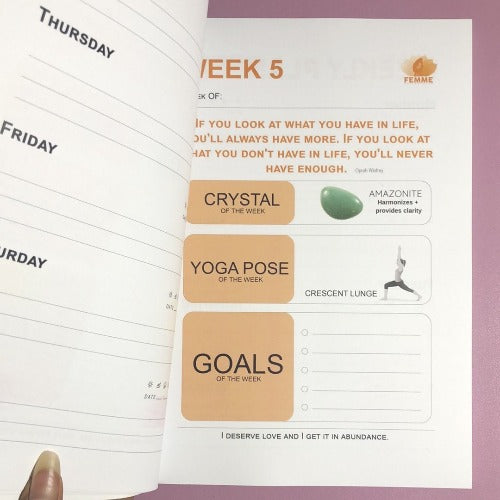 THURSDAY
FRIDAY
URDAY
WEEK 5
FEMME
EK OF:
IF YOU LOOK AT WHAT YOU HAVE IN LIFE,
OU'LL ALWAYS HAVE MORE. IF YOU LOOK AT
HAT YOU DON'T HAVE IN LIFE, YOU'LL NEVER
HAVE ENOUGH. Oprah Winfrey
CRYSTAL
OF THE WEEK
AMAZONITE
Harmonizes +
provides clarity
YOGA POSE
OF THE WEEK
CRESCENT LUNGE
GOALS
OF THE WEEK
I DESERVE LOVE AND I GET IT IN ABUNDANCE.